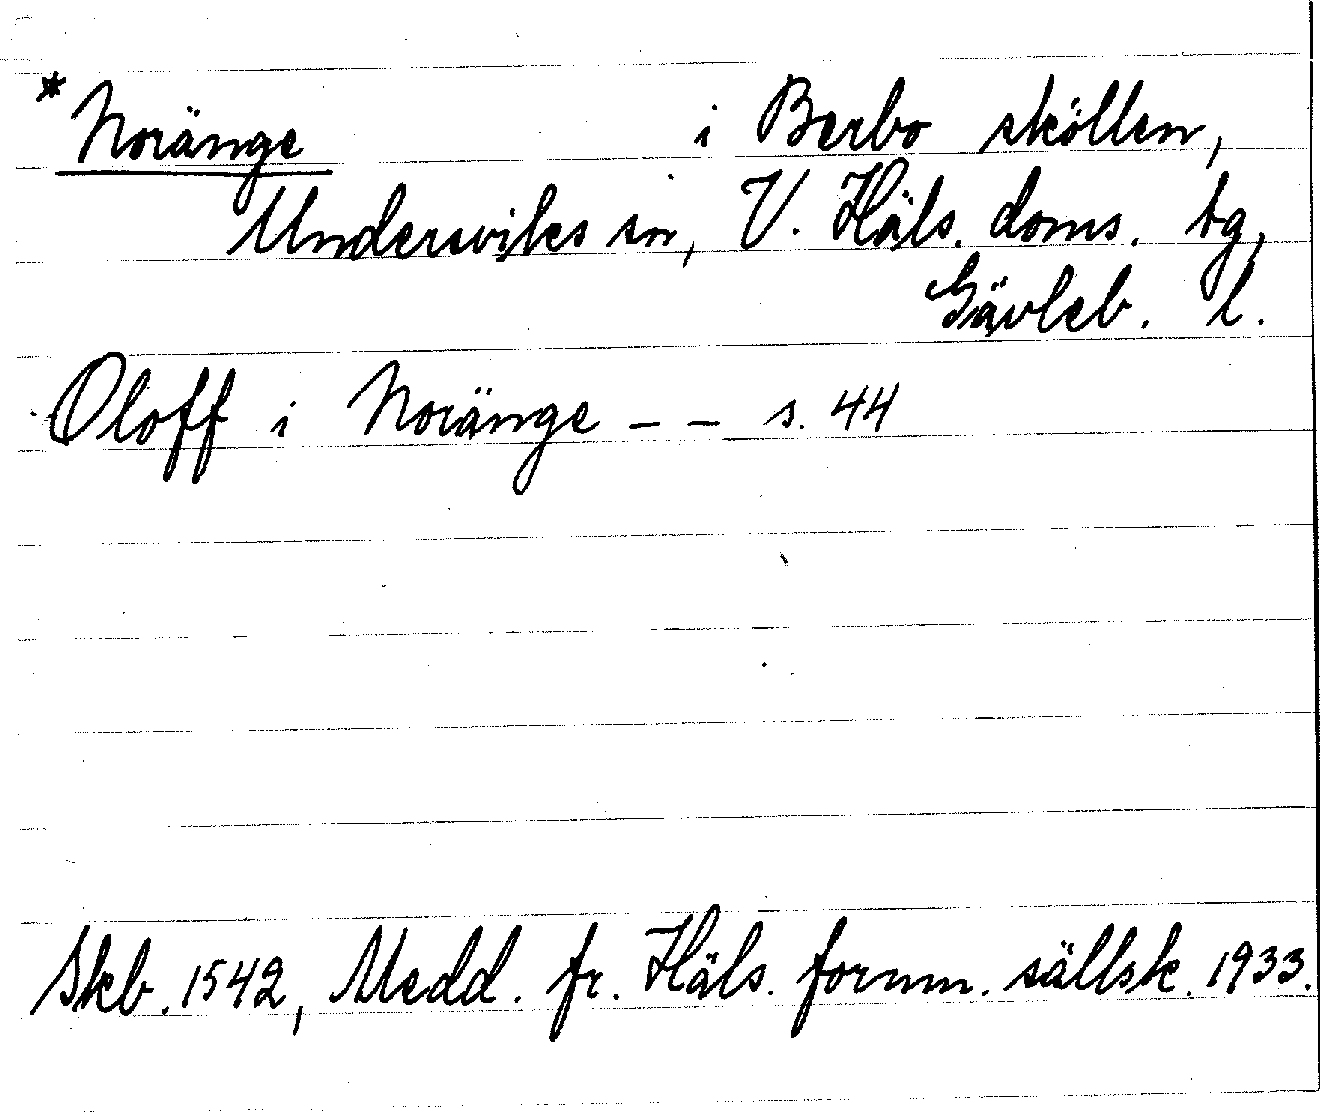 * Noränge i Berbo sköllen,
Undersviks sn, V. Häls. doms. tg,
Gävleb. l.
Oloff i Noränge – – s. 44
Skb. 1542, Medd. fr. Häls. fornm. sällsk. 1933.